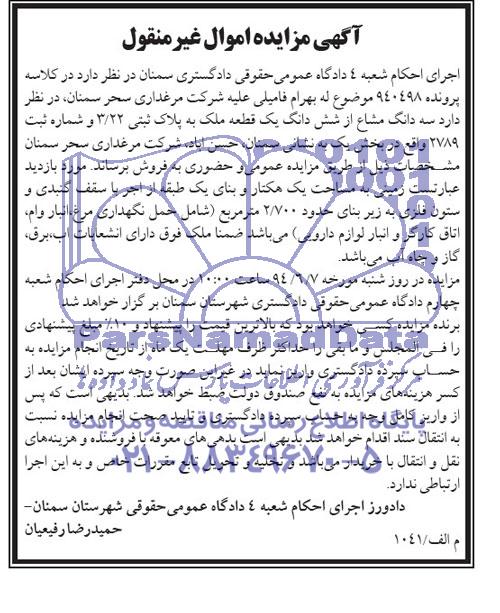 آگهی مزایده اموال غیر منقول
اجرای احکام شعبه ۴ دادگاه عمومی‌حقوقی دادگستری سمنان در نظر دارد در کلاسه
پرونده ۹۴۰۴۹۸ موضوع له بهرام فامیلی علیه شرکت مرغداری سحر سمنان، در نظر
دارد سه دانگ مشاع از شش دانگ یک قطعه ملک به پلاک ثبتی ۳/۲۲ و شماره ثبت
۲۷۸۹ واقع در بخش یک به نشانی سمنان، حسن آباد، شرکت مرغداری سحر سمنان
مشخصات ذیل از طریق مزایده عمومی‌و حضوری به فروش برساند. مورد بازدید
عبارتست زمینی به مساحت یک هکتار و بنای یک طبقه از اجر با سقف گنبدی و
ستون فلزی به زیر بنای حدود ۲/۷۰۰ مترمربع (شامل حمل نگهداری مرغ،انبار وام،
اتاق کارگر و انبار لوازم دارویی) می‌باشد ضمنا ملک فوق دارای انشعابات اب،برق،
گاز و چاه اب می‌باشد.
مزایده در روز شنبه مورخه ۹۴/۶/۷ ساعت ۱۰:۰۰ در محل دفتر اجرای احکام شعبه
چهارم دادگاه عمومی‌حقوقی دادگستری شهرستان سمنان بر گزار خواهد شد
برنده مزایده کسی خواهد بود که بالاترین قیمت را پیشنهاد و ۱۰٪ مبلغ پیشنهادی
را فی المجلس و ما بقی را حداکثر ظرف مهلت یک ماه از تاریخ انجام مزایده به
حساب سپرده دادگستری واریز نماید در غیر این صورت وجه سپرده ایشان بعد از
کسر هزینه‌های مزایده به نفع صندوق دولت ضبط خواهد شد. بدیهی است که پس
از واریز کامل وجه به حساب سپرده دادگستری و تایید صحت انجام مزایده نسبت
به انتقال سند اقدام خواهد شد بدیهی است بدهی های معوقه با فروشنده و هزینه‌های
نقل و انتقال با خریدار می‌باشد و تخلیه و تحویل تابع مقررات خاص و به این اجرا
ارتباطی ندارد.
دادورز اجرای احکام شعبه ۴ دادگاه عمومی‌حقوقی شهرستان سمنان–
حمیدرضا رفیعیان
م الف/۱۰۴۱
ParsNamadData
مرکز فرآوری اطلاعات پارس نماد داده ها
پایگاه اطلاع رسانی مناقصه و مزایده
۰۲۱-۸۸۳۴۹۶۷۰-۵